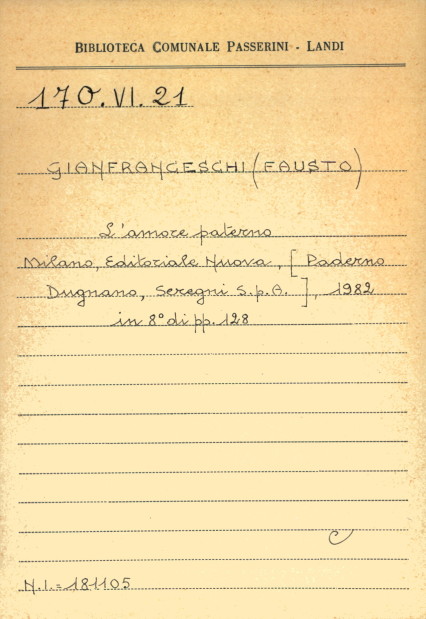 BIBLIOTECA COMUNALE PASSERINI - LANDI
170.VI.21
GIANFRANCESCHI (FAUSTO)
L'amore paterno
Milano, Editoriale Nuova, [Paderno
Dugnano, Seregni S.p.A.], 1982
in 8° di pp. 128
C
N.I.= 181105